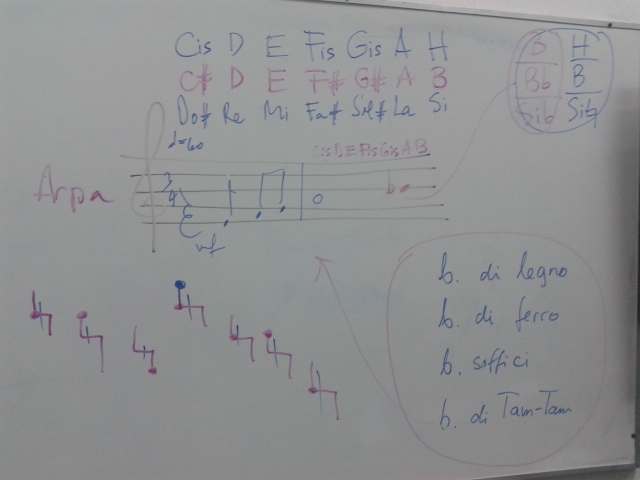 Cis D E Fis Gis A H
C# D E F# G# A B
Do# Re Mi Fa# Sol# La Si
B H
Bb B
Sib Sib
♩=60
Cis D E Fis Gis A B
Arpa
3
4
mf
b
b. di legno
b. di ferro
b. soffici
b. di Tam-Tam